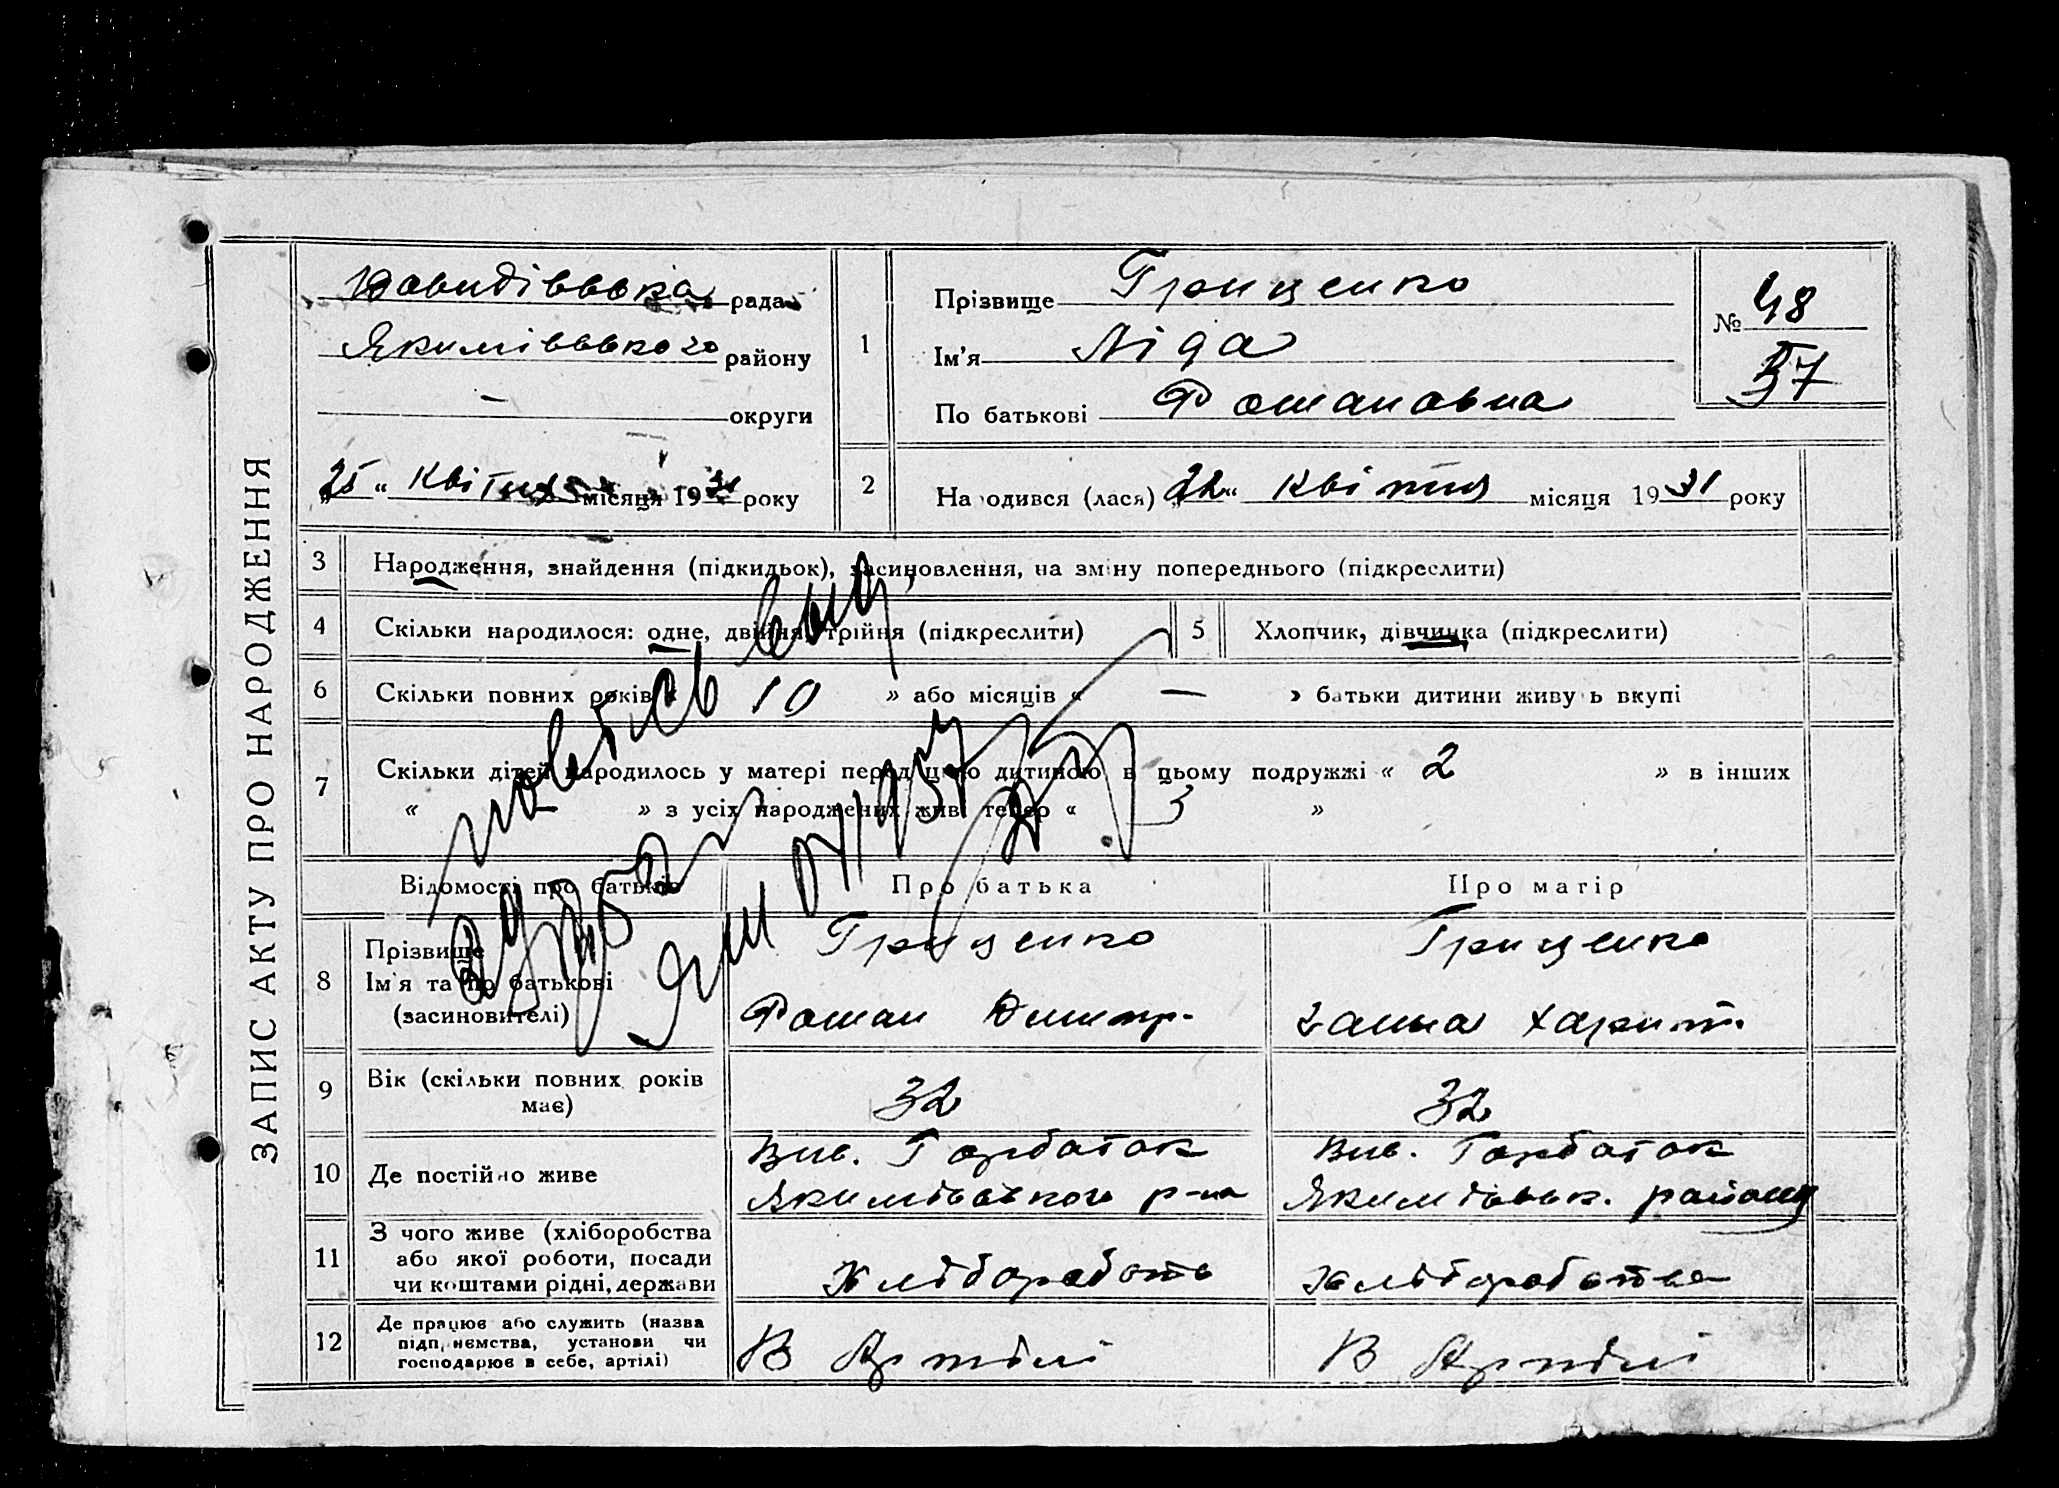 ЗАПИС АКТУ ПРО НАРОДЖЕННЯ
Давидівська рада
Якимівського району
— округи
„25“ Квітня місяця 1931 року
1
Прізвище Гриценко
Ім'я Ліда
По батькові Романовна
№ 48
57
2
Народився (лася) „22“ Квітня місяця 1931 року
3 Народження, знайдення (підкидьок), засиновлення, на зміну попереднього (підкреслити)
4 Скільки народилося: одне, двійня, трійня (підкреслити)
5 Хлопчик, дівчинка (підкреслити)
6 Скільки повних років « 10 » або місяців « — » батьки дитини живуть вкупі
7 Скільки дітей народилось у матері перед цією дитиною в цьому подружжі « 2 » в інших
« — » з усіх народжених живі тепер « 3 »
повторно выд
Відомості про батьків
Про батька
Про матір
8 Прізвище
Ім'я та по батькові
(засиновителі)
Гриценко
Роман Дмитр.
Гриценко
Ганна Харит.
9 Вік (скільки повних років
має)
32
32
10 Де постійно живе
Вис. Горбаток
Якимівського р-на
Вис. Горбаток
Якимівськ. району
11 З чого живе (хліборобства
або якої роботи, посади
чи коштами рідні, держави
Хліборобств
Хліборобства
12 Де працює або служить (назва
підприємства, установи чи
господарює в себе, артілі)
В Артілі
В Артілі